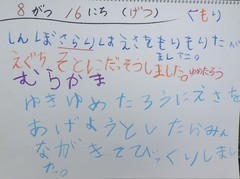 8 がつ 16 にち (げつ) くもり
しんぼさらりはえさをもりもりた
べました。
えぐちそとにだ、そうしました。ゆめたろう
むらがま
ゆきゆめたろうにえさを
あげようとしたらみん
ながきてびっくりしまし
た。